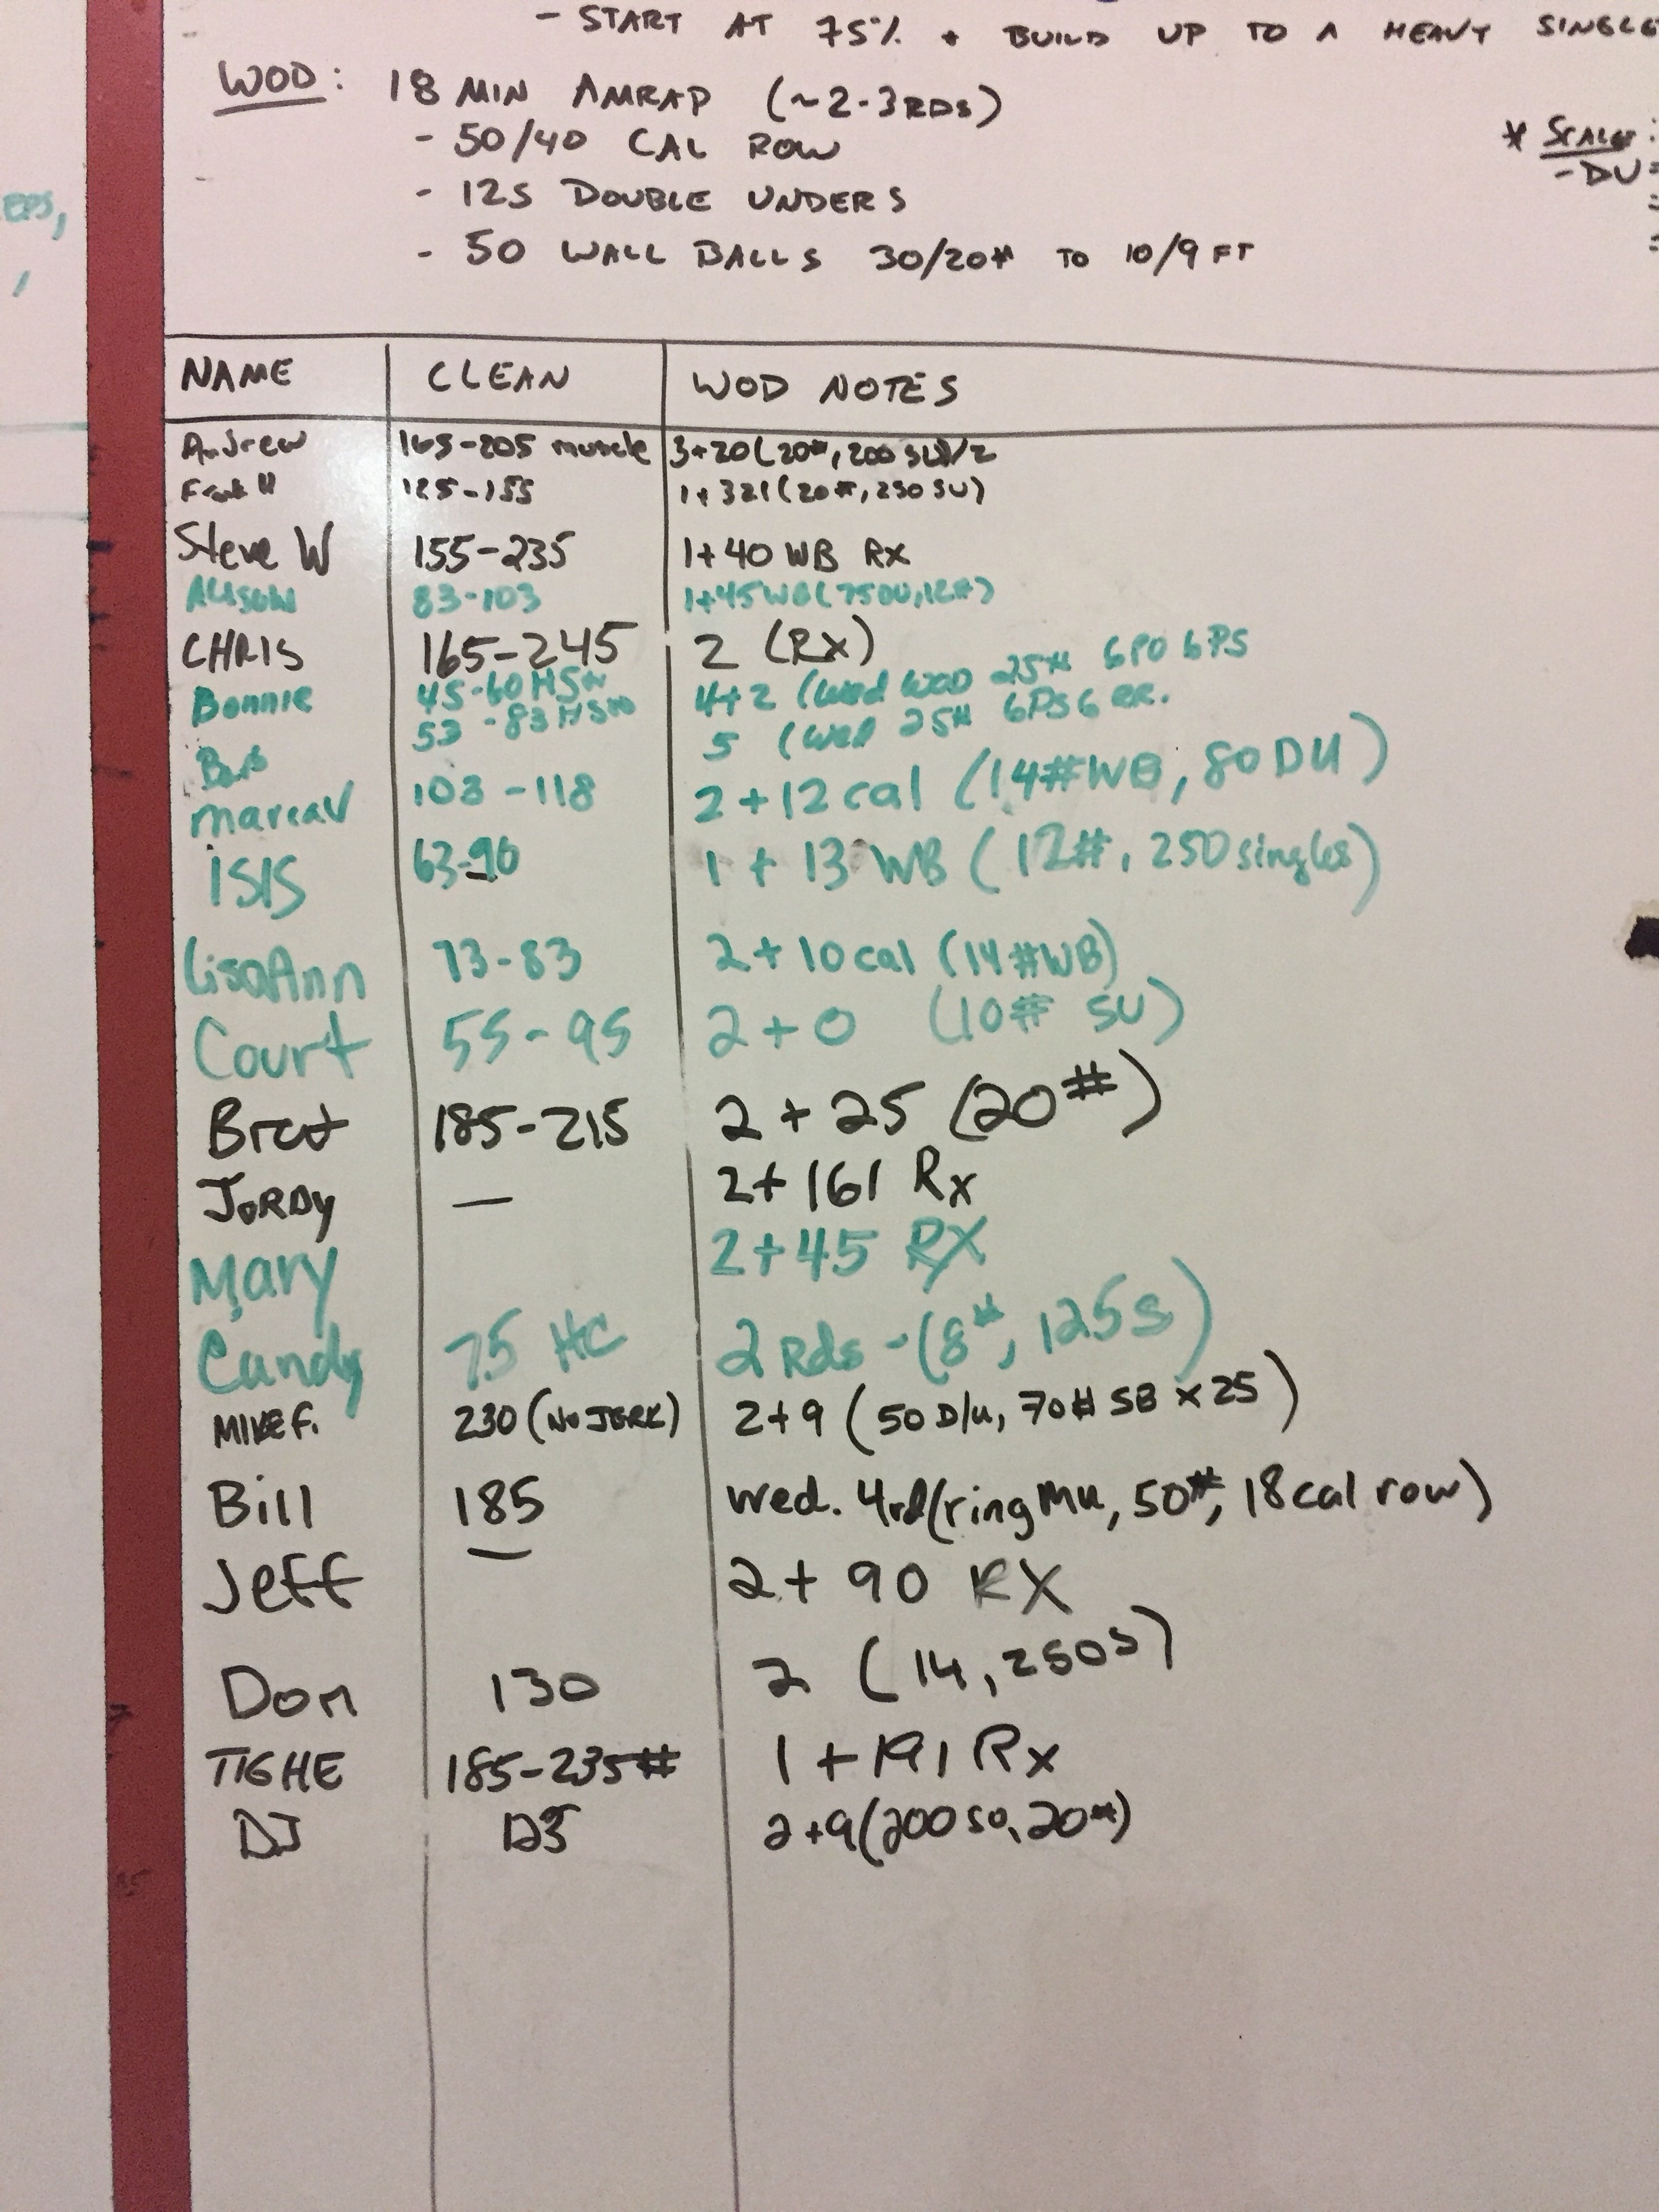 - START AT 75% + BUILD UP TO A HEAVY SINGLE
WOD: 18 MIN AMRAP (~2-3RDS)
- 50/40 CAL ROW
- 125 DOUBLE UNDERS
- 50 WALL BALLS 30/20# TO 10/9 FT
* SCALE:
- DU =
NAME CLEAN WOD NOTES
Andrew 165-205 muscle 3+20(20#, 200 SU)/2
Frank H 125-155 1+321(20#, 250 SU)
Steve W 155-235 1+40 WB Rx
Alison 83-103 1+45WB(75DU,12#)
CHRIS 165-245 2 (Rx)
Bonnie 45-60 HSN 4+2 (Wed WOD 25# 6PO 6PS
Barb 53-83 HSN 5 (Wed 25# 6PS 6 RR.
MarcaV 103-118 2+12 cal (14#WB, 80DU)
ISIS 63-90 1+13 WB (12#, 250 singles)
LisaAnn 73-83 2+10cal (14#WB)
Court 55-95 2+0 (10# SU)
Bret 185-215 2+25 (20#)
JORDY — 2+161 Rx
Mary 2+45 RX
Candy 75 HC 2 Rds - (8#, 125 S)
MIKE F. 230 (NO JERK) 2+9 (50 D/U, 70# SB x 25)
Bill 185 wed. 4rd(ring MU, 50#, 18cal row)
Jeff — 2+90 RX
Don 130 2 (14, 250s)
TIGHE 185-235# 1+191 Rx
DJ 2+9(200 SU, 20#)